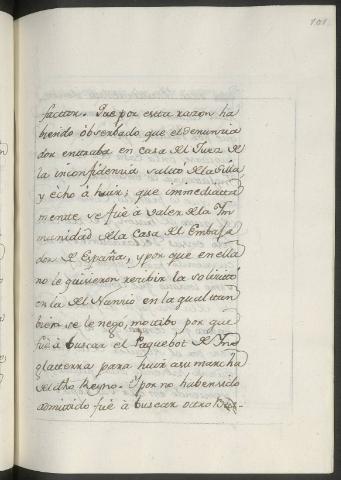 101
factor. Que por esta razon ha
biendo observado que el denuncia
dor entraba en casa del Juez de
la inconfidencia saltó de la Silla
y echo à huir; que inmediata
mente se fué à valer de la Im
munidad de la Casa del Embaja
dor de España, y por que en ella
no le quisieron recibir la solicitó
en la del Nuncio en la qual tam
bien se le negó, motibo por que
fué à buscar el Paquebot de In
glatterra para huir a su marcha
del dho Reyno. Y por no haber sido
admitido fué à buscar otro Bu-